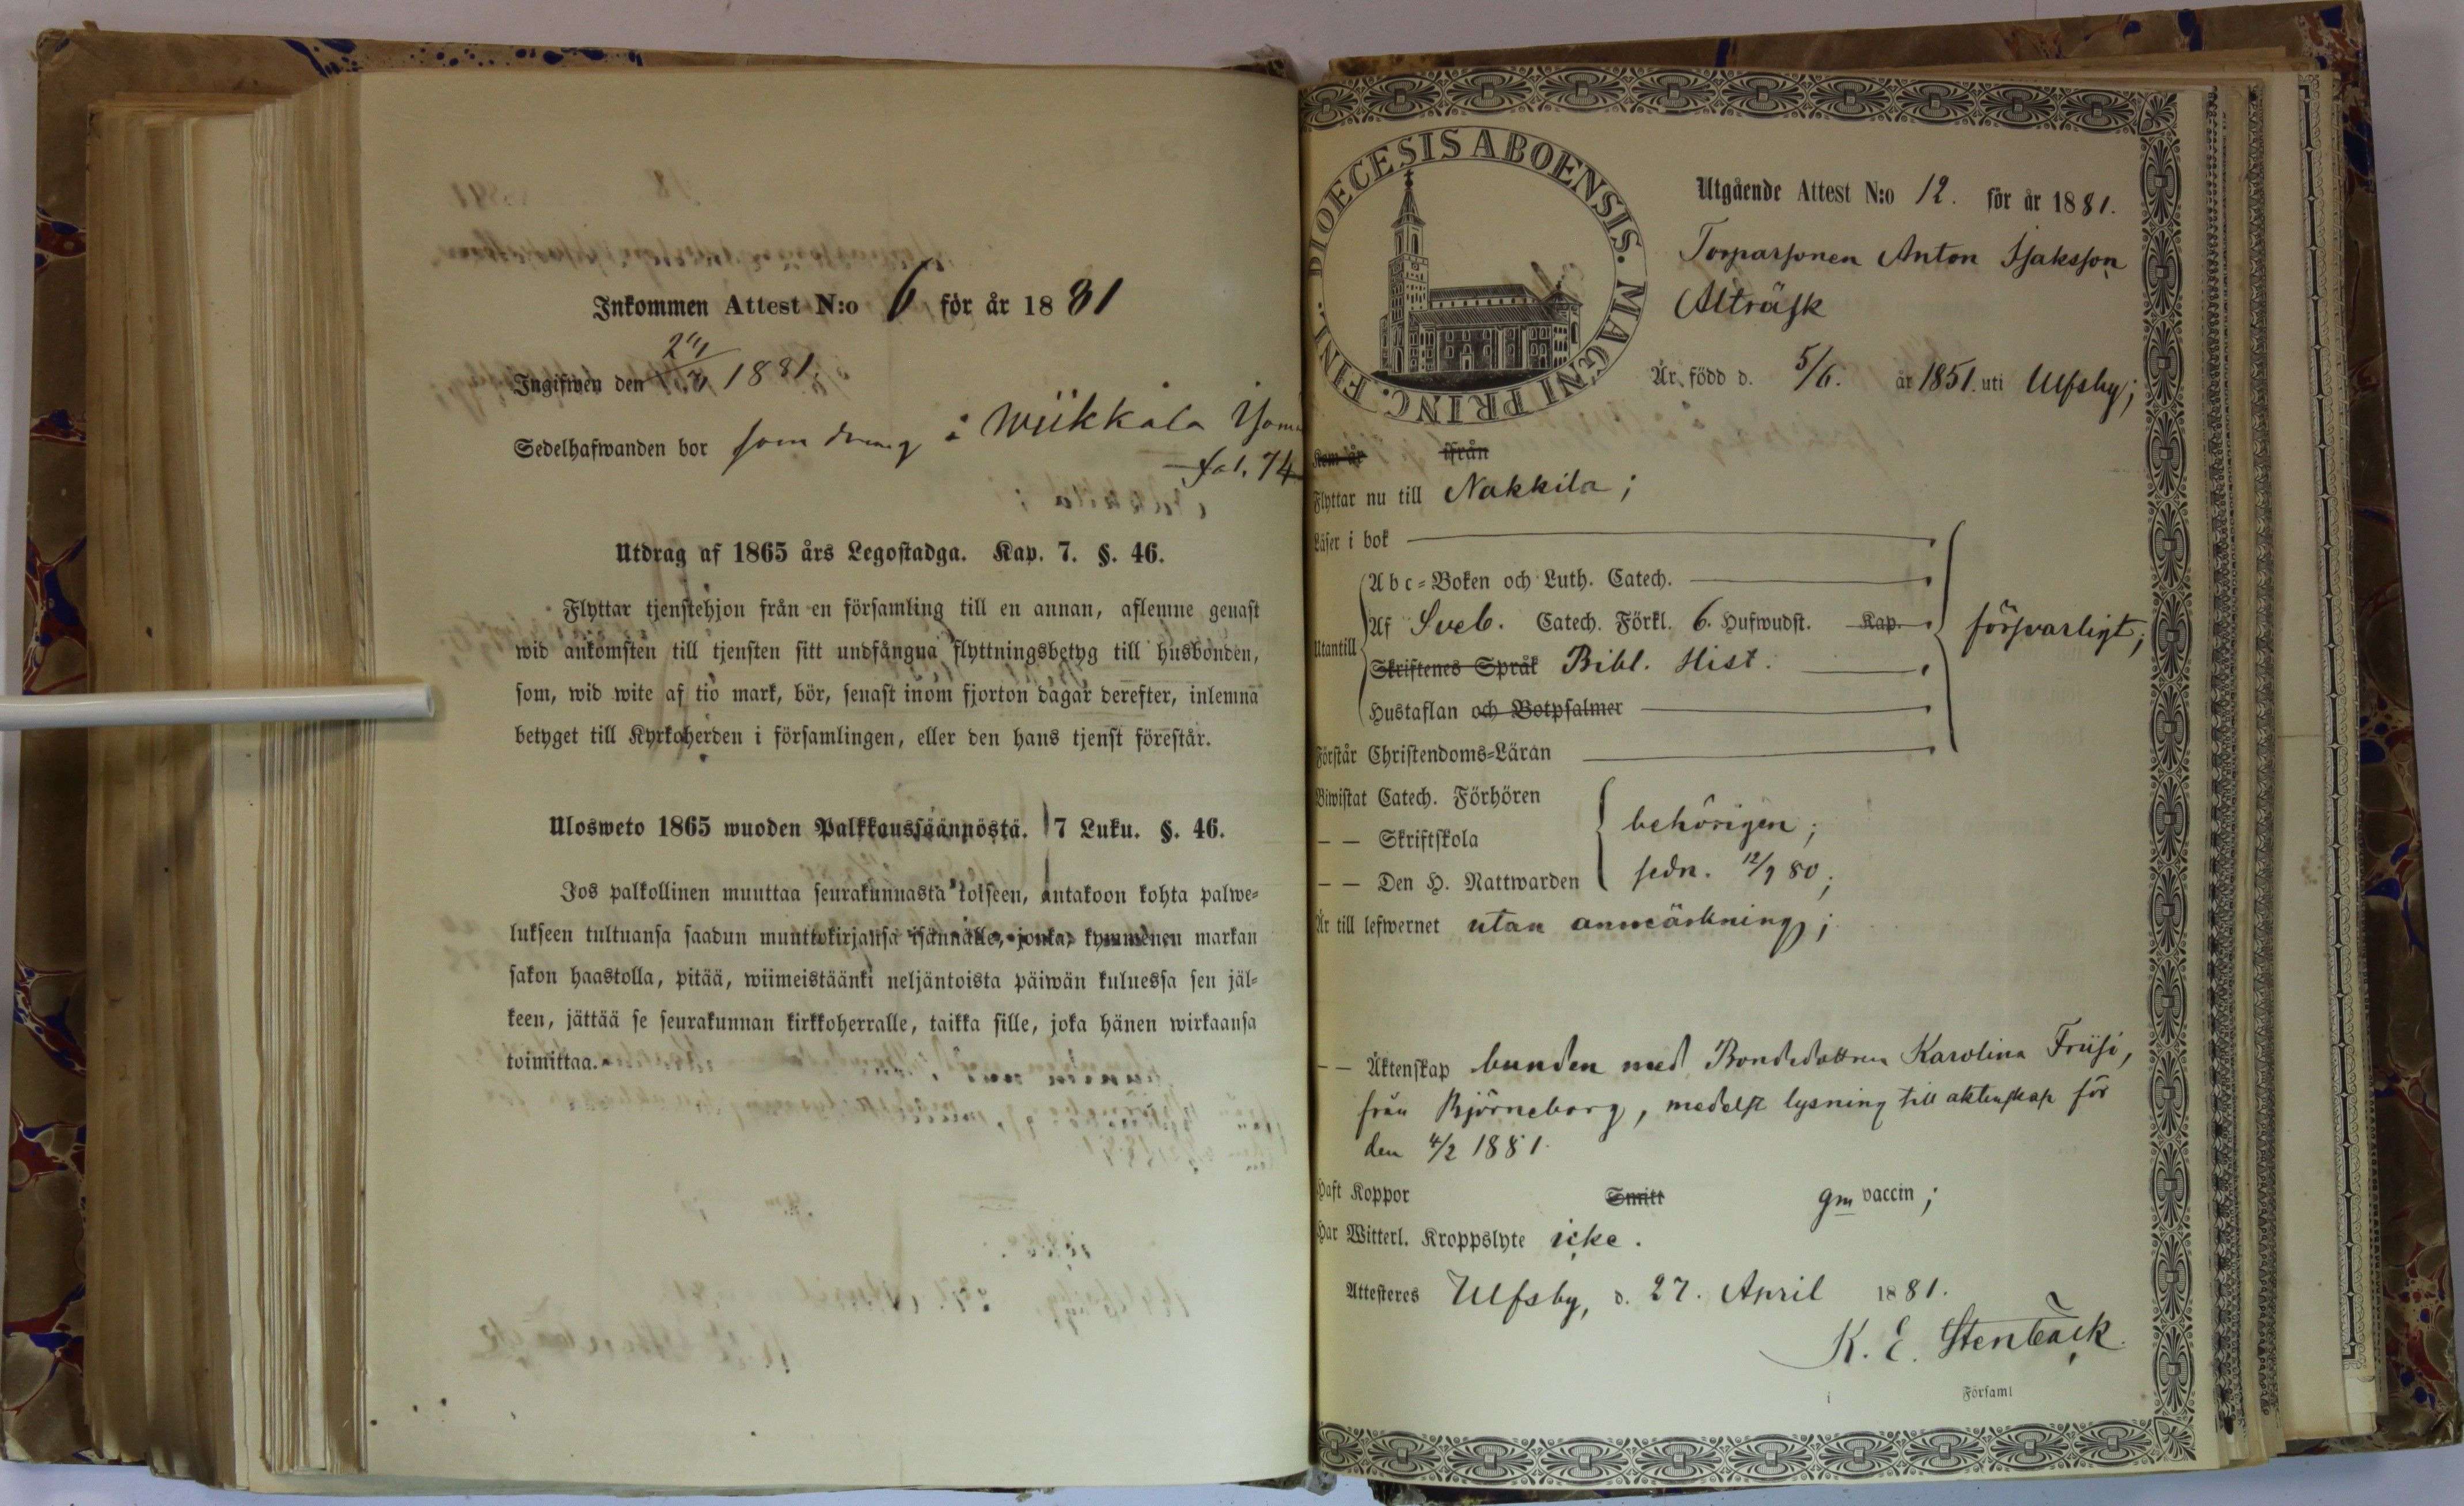 Inkommen Attest N:o 6 för år 1881
Ingifwen den 1881.
Sedelhafwanden bor som dreng i Wiikkala
fol. 74
Utdrag af 1865 års Legostadga. Kap. 7. §. 46.
Flyttar tjenstehjon från en församling till en annan, aflemne genast
wid ankomsten till tjensten sitt undfångna flyttningsbetyg till husbonden,
som, wid wite af tio mark, bör, senast inom fjorton dagar derefter, inlemna
betyget till Kyrkoherden i församlingen, eller den hans tjenst förestår.
Ulosweto 1865 wuoden Palkkaussäännöstä. 7 Luku. §. 46.
Jos palkollinen muuttaa seurakunnasta toiseen, antakoon kohta palwe=
lukseen tultuansa saadun muuttokirjansa isännälle, jonka, kymmenen markan
sakon haastolla, pitää, wiimeistäänki neljäntoista päiwän kuluessa sen jäl=
keen, jättää se seurakunnan kirkkoherralle, taikka sille, joka hänen wirkaansa
toimittaa.
DIOECESIS ABOENSIS. MAGNI PRINC. FINL.
Utgående Attest N:o 12. för år 1881.
Torparsonen Anton Isaksson
Alträsk
Är född d. 5/6. år 1851. uti Ulfsby;
Kom år ifrån
Flyttar nu till Nakkila;
Läser i bok
Abc=Boken och Luth. Catech.
Utantill Af Sveb. Catech. Förkl. 6. Hufwudst. Kap. försvarligt;
Skriftenes Språk Bibl. Hist.
Hustaflan och Botpsalmer
Förstår Christendoms=Läran
Biwistat Catech. Förhören
— — Skriftskola behörigen;
— — Den H. Nattwarden sedn. 12/9 80;
Är till lefwernet utan anmärkning;
— — Äktenskap bunden med Bondedottren Karolina Friisi,
från Björneborg, medelst lysning till äktenskap för
den 4/2 1881.
Haft Koppor Smitt gm vaccin;
Har Witterl. Kroppslyte icke.
Attesteres Ulfsby, d. 27. April 1881.
K. E. Stenbäck.
i Församl